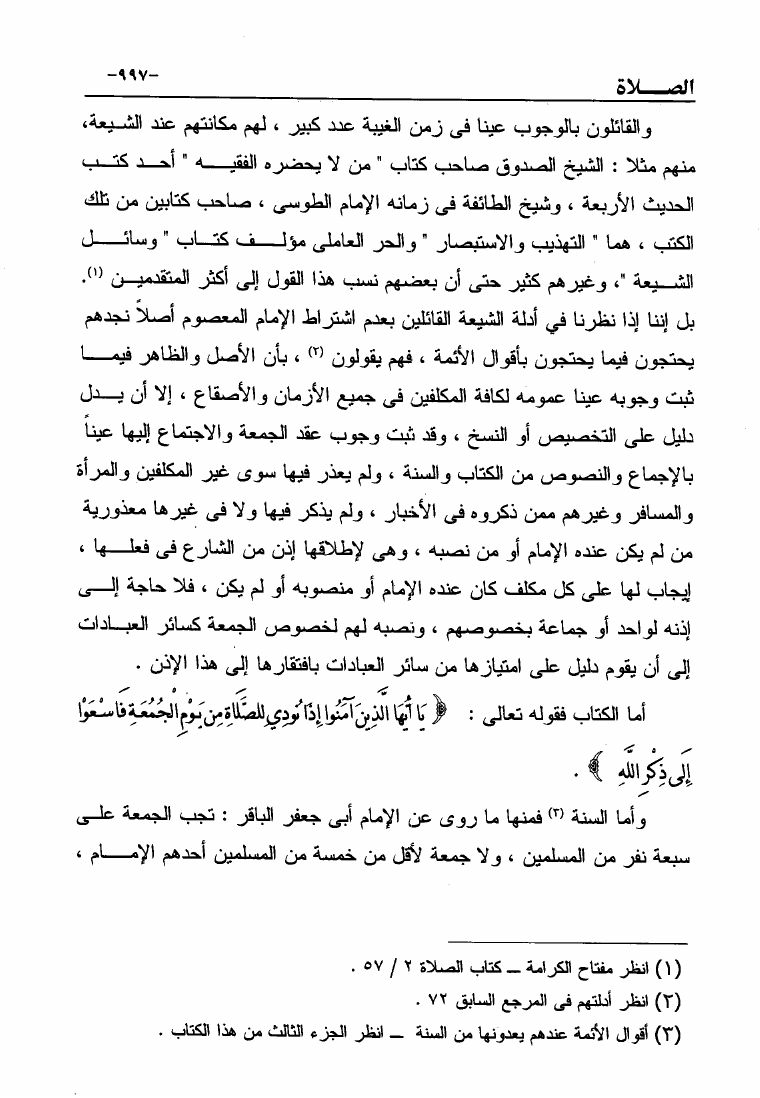 الصـــلاة
-٩٩٧-
والقائلون بالوجوب عينا فى زمن الغيبة عدد كبير ، لهم مكانتهم عند الشـيعة،
منهم مثلا : الشيخ الصدوق صاحب كتاب " من لا يحضره الفقيـــه " أحـد كتـب
الحديث الأربعة ، وشيخ الطائفة فى زمانه الإمام الطوسى ، صاحب كتابين من تلك
الكتب ، هما " التهذيب والاستبصار " والحر العاملى مؤلـــف كتــاب " وسائـــل
الشـــيعة "، وغيرهم كثير حتى أن بعضهم نسب هذا القول إلى أكثر المتقدميـن (١).
بل إننا إذا نظرنا في أدلة الشيعة القائلين بعدم اشتراط الإمام المعصوم أصلاً نجدهم
يحتجون فيما يحتجون بأقوال الأئمة ، فهم يقولون (٢) ، بأن الأصل والظاهر فيمـــا
ثبت وجوبه عينا عمومه لكافة المكلفين فى جميع الأزمان والأصقاع ، إلا أن يـــدل
دليل على التخصيص أو النسخ ، وقد ثبت وجوب عقد الجمعة والاجتماع إليها عيناً
بالإجماع والنصوص من الكتاب والسنة ، ولم يعذر فيها سوى غير المكلفين والمرأة
والمسافر وغيرهم ممن ذكروه فى الأخبار ، ولم يذكر فيها ولا فى غيرها معذورية
من لم يكن عنده الإمام أو من نصبه ، وهى لإطلاقها إذن من الشارع فى فعلـــها ،
إيجاب لها على كل مكلف كان عنده الإمام أو منصوبه أو لم يكن ، فلا حاجة إلـــى
إذنه لواحد أو جماعة بخصوصهم ، ونصبه لهم لخصوص الجمعة كسائر العبـادات
إلى أن يقوم دليل على امتيازها من سائر العبادات بافتقارها إلى هذا الإذن .
أما الكتاب فقوله تعالى : ﴿ يَا أَيُّهَا الَّذِينَ آمَنُوا إِذَا نُودِي لِلصَّلَاةِ مِن يَوْمِ الْجُمُعَةِ فَاسْعَوْا
إِلَى ذِكْرِ اللَّهِ ﴾ .
وأما السنة (٣) فمنها ما روى عن الإمام أبى جعفر الباقر : تجب الجمعة علـــى
سبعة نفر من المسلمين ، ولا جمعة لأقل من خمسة من المسلمين أحدهم الإمـــام ،
(١) انظر مفتاح الكرامة ــ كتاب الصلاة ٢ / ٥٧ .
(٢) انظر أدلتهم فى المرجع السابق ٧٢ .
(٣) أقوال الأئمة عندهم يعدونها من السنة ــ انظر الجزء الثالث من هذا الكتاب .